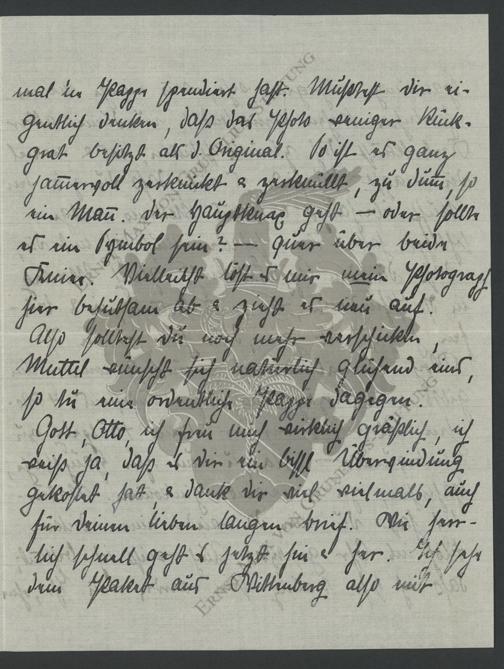 mal 'ne Pappe spendiert hast. Mußtest dir ei-
gentlich denken, daß das Photo weniger Rück-
grat besitzt als d. Original. So ist es ganz
jam̅ervoll zerknickt & zerknüllt, zu dum̅, so
ein Man̅. Der Hauptknax geht – oder sollte
es ein Symbol sein? – quer über beide
Kniee. Vielleicht löst es mir mein Photograph
hier behutsam ab & zieht es neu auf.
Also solltest du noch mehr verschicken,
Muttel wünscht sich natürlich glühend eins,
so tu eine ordentliche Pappe dagegen.
Gott, Otto, ich freu mich wirklich gräßlich, ich
weiß ja, daß es dir ein bissl Überwindung
gekostet hat & dank dir viel vielmals, auch
für deinen lieben langen Brief. Wie herr-
lich schnell geht es jetzt hin & her. Ich sehe
dem Paket aus Wittenberg also mit
ERNST VON TRUNG STIFTUNG